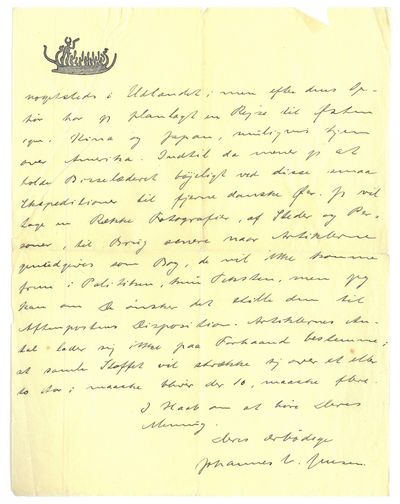 nogetsteds i Udlandet; men efter dens Op-
hør har jg planlagt en Rejse til Østen
igen. Kina og Japan, muligvis hjem
over Amerika. Indtil da mener jg at
holde Bissel bøjeligt ved disse smaa
Ekspeditioner til fjerne danske Øer. Jg vil
tage en Række Fotografier, af Steder og Per-
soner, til Brug senere naar Artiklerne
genudgives som Bog, de vil ikke komme
frem i Politiken, kun Teksten, men jeg
kan om De ønsker det stille dem til
Aftenpostens Disposition. Artiklernes An-
tal lader sig ikke paa Forhaand bestemme;
at samle Stoffet vil strække sig over et eller
to Aar; maaske bliver der 10, maaske flere.
I Haab om at høre Deres
Mening.
Deres ærbødige
Johannes V. Jensen.